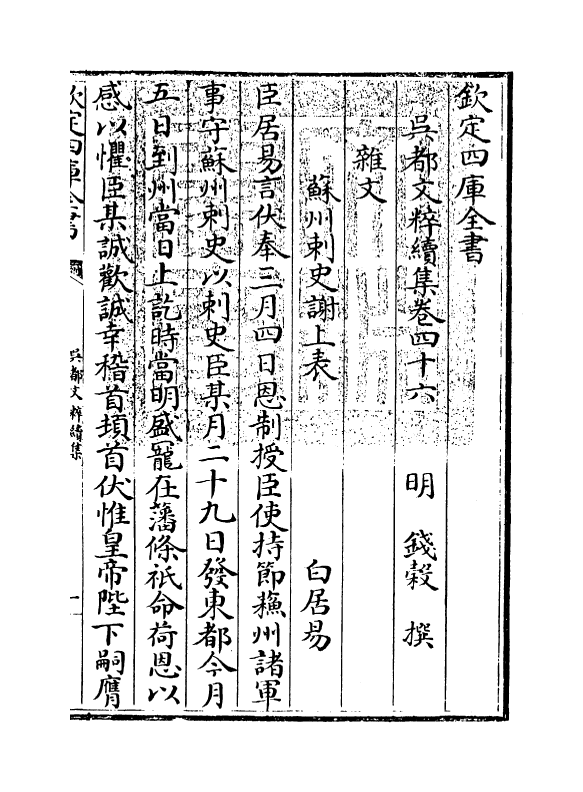 欽定四庫全書
吳都文粹續集卷四十六
明 錢穀 撰
雜文
蘇州刺史謝上表
白居易
臣居易言伏奉三月四日恩制授臣使持節蘇州諸軍
事守蘇州刺史以刺史臣某月二十九日發東都今月
五日到州當日上訖時當明盛寵在藩條祇命荷恩以
感以懼臣某誠歡誠幸稽首頓首伏惟皇帝陛下嗣膺
欽定四庫全書
吳都文粹續集
一